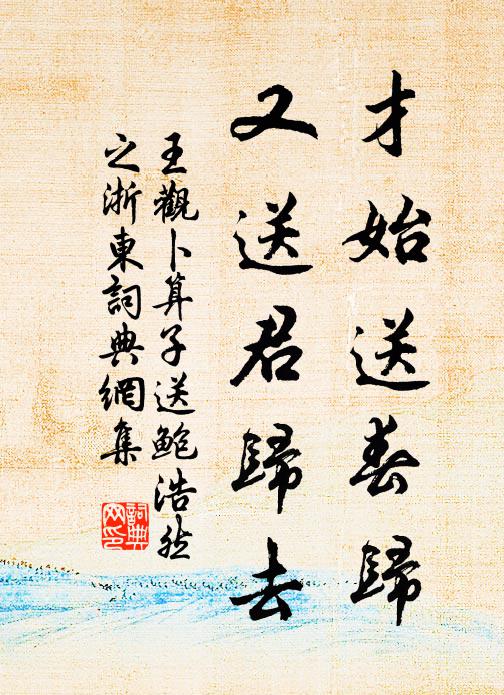 才始送春歸
又送君歸去
王觀卜算子送鮑浩然
之浙東詞典網集
詞典
网印